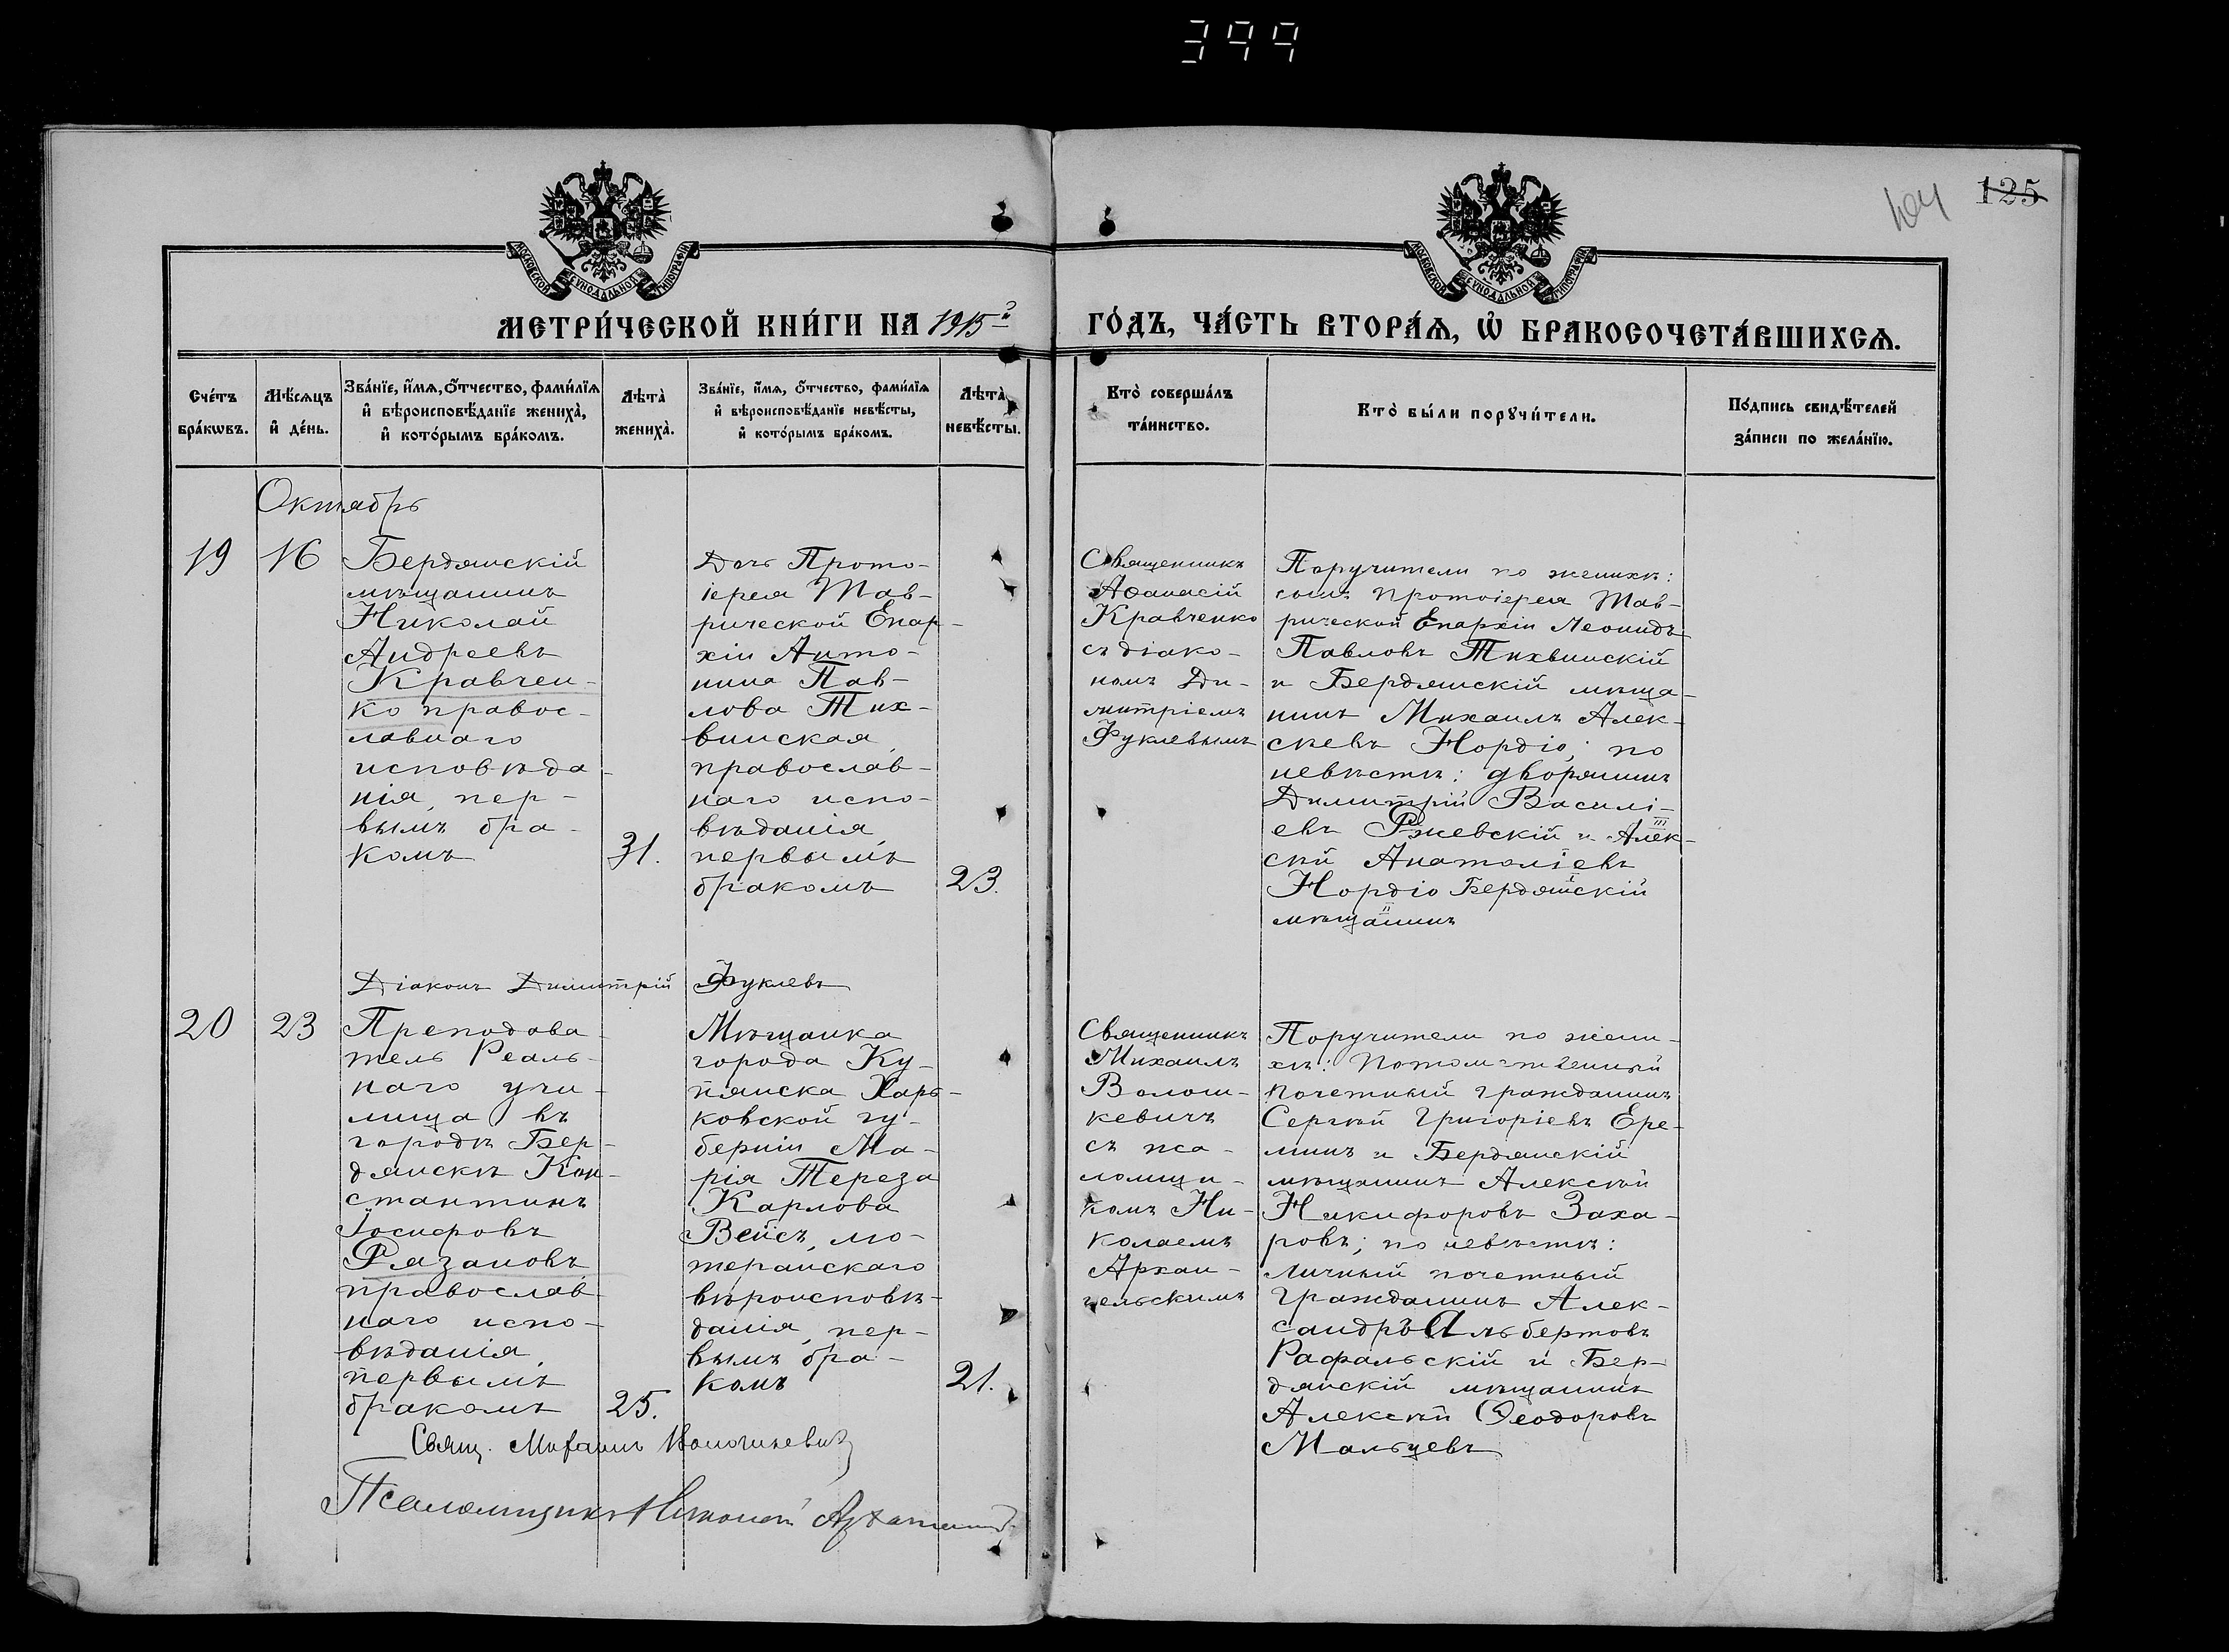 399
125
МОСКОВСКОЙ СУНОДАЛЬНОЙ ТИПОГРАФІИ
МОСКОВСКОЙ СУНОДАЛЬНОЙ ТИПОГРАФІИ
МЕТРИ́ЧЕСКОЙ КНИ́ГИ НА 1915й
ГО́ДЪ, ЧА́СТЬ ВТОРА́Ѧ, Ѡ҆ БРАКОСОЧЕТА́ВШИХСѦ.
Сче́тъ бра́кѡвъ.
Мѣ́сѧцъ и҆ де́нь.
Зва́нїе, и҆́мѧ, ѻ҆́тчество, фами́лїѧ
и҆ вѣроисповѣ́данїе жениха̀,
и҆ кото́рымъ бра́комъ.
Лѣта̀ жениха̀.
Зва́нїе, и҆́мѧ, ѻ҆́тчество, фами́лїѧ
и҆ вѣроисповѣ́данїе невѣ́сты,
и҆ кото́рымъ бра́комъ.
Лѣта̀ невѣ́сты.
Кто̀ соверша́лъ
та́инство.
Кто̀ бы́ли порꙋчи́тели.
По́дпись свидѣ́телей
за́писи по жела́нїю.
Октябрь
19
16
Бердянскій
мѣщанинъ
Николай
Андреевъ
Кравчен-
ко правос-
лавнаго
исповѣда-
нія, пер-
вымъ бра-
комъ
31.
Дочь Прото-
іерея Тав-
рической Епар-
хіи Анто-
нина Пав-
лова Тих-
винская,
православ-
наго испо-
вѣданія,
первымъ
бракомъ
23.
Священникъ
Аѳанасій
Кравченко
съ діако-
номъ Ди-
митріемъ
Фуклевымъ
Поручители по женихѣ:
сынъ Протоіерея Тав-
рической Епархіи Леонидъ
Павловъ Тихвинскій
и Бердянскій мѣща-
нинъ Михаилъ Алек-
сѣевъ Нордіо; по
невѣстѣ: дворянинъ
Димитрій Василі-
евъ Ржевскій и Алек-
сѣй Анатоліевъ
Нордіо Бердянскій
мѣщанинъ
Діаконъ Димитрій Фуклевъ
20
23
Преподова-
тель Реаль-
наго учи-
лища въ
городѣ Бер-
дянскѣ Кон-
стантинъ
Іосифовъ
Рязановъ
православ-
наго испо-
вѣданія,
первымъ
бракомъ
25.
Мѣщанка
города Ку-
пянска Харь-
ковской гу-
берніи Ма-
рія Тереза
Карлова
Вейсъ, лю-
теранскаго
вѣроисповѣ-
данія, пер-
вымъ бра-
комъ
21.
Священникъ
Михаилъ
Волош-
кевичъ
съ пса-
ломщи-
комъ Ни-
колаемъ
Архан-
гельскимъ
Поручители по жени-
хѣ: Потомственный
почетный гражданинъ
Сергѣй Григоріевъ Ере-
минъ и Бердянскій
мѣщанинъ Алексѣй
Никифоровъ Заха-
ровъ; по невѣстѣ:
личный почетный
гражданинъ Алек-
сандръ Альбертовъ
Рафальскій и Бер-
дянскій мѣщанинъ
Алексѣй Ѳеодоровъ
Мальцевъ
Свящ. Михаилъ Волошкевичъ
Псаломщикъ Николай